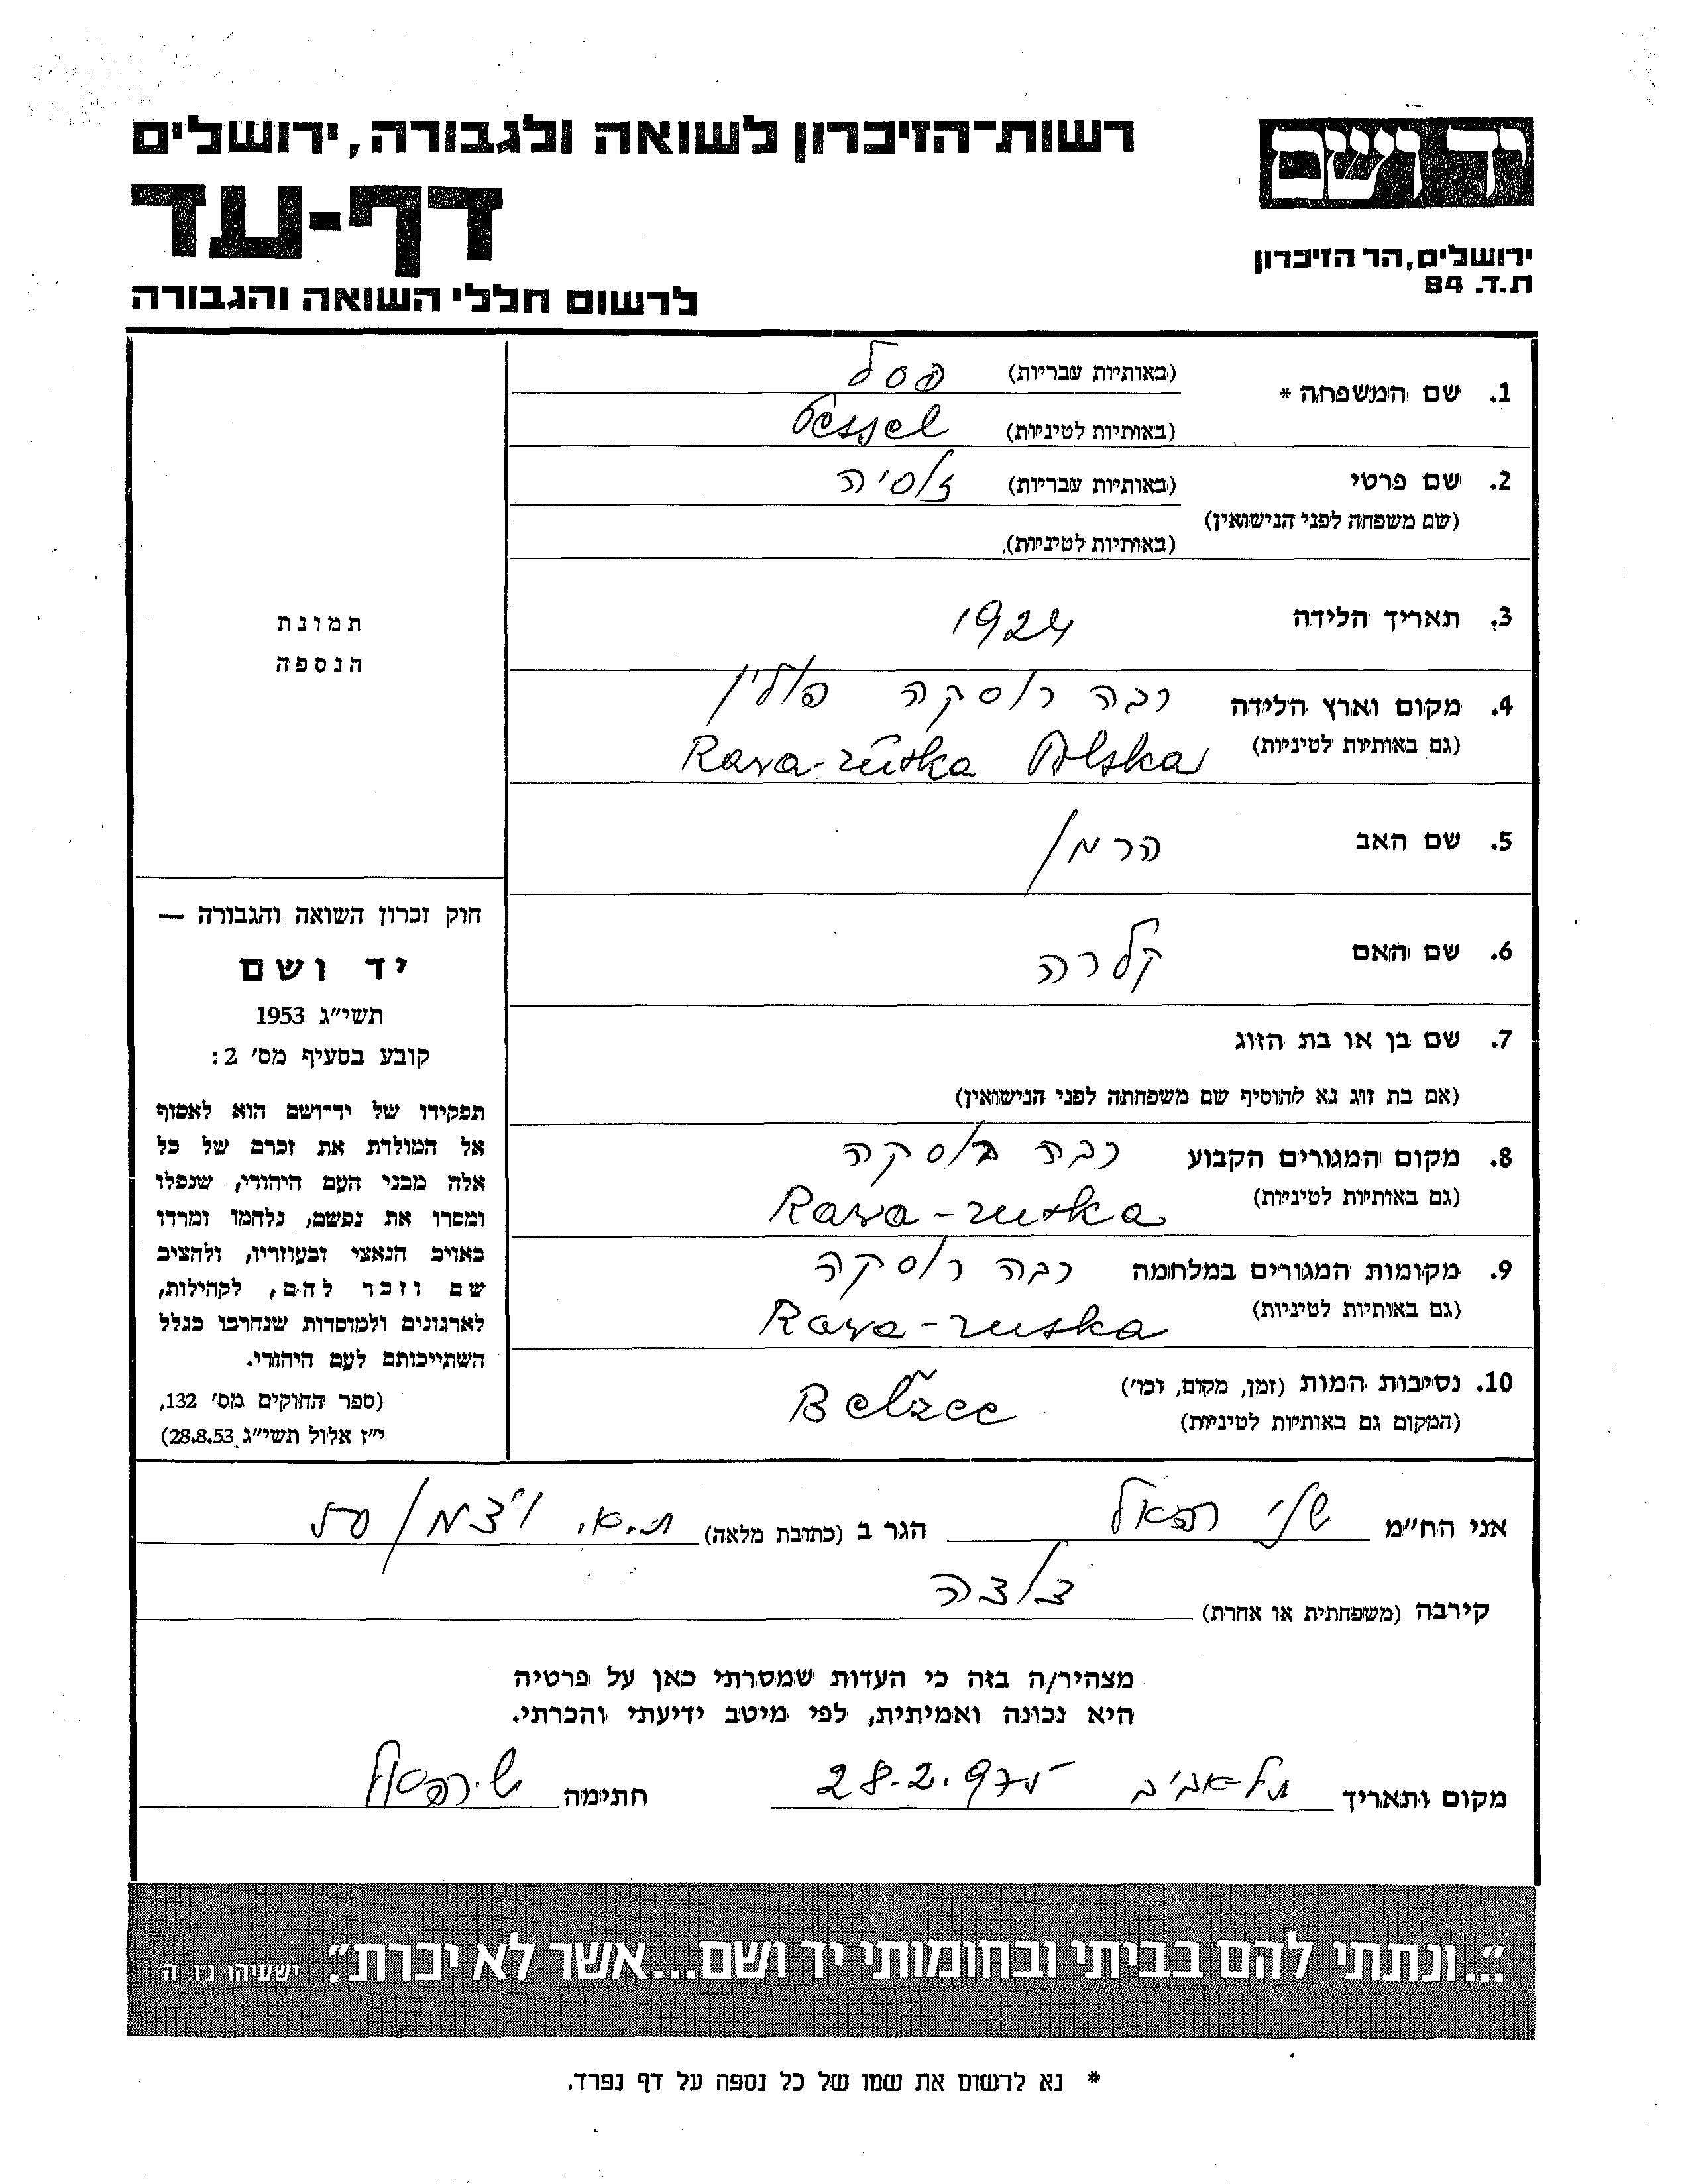 רשות־הזיכרון לשואה ולגבורה, ירושלים
יד ושם
דף-עד
ירושלים, הר הזיכרון
ת.ד. 84
לרשום חללי השואה והגבורה
1. שם המשפחה * (באותיות עבריות) פסל
(באותיות לטיניות) Pessel
2. שם פרטי (באותיות עבריות) זוסיה
(שם משפחה לפני הנישואין)
(באותיות לטיניות)
3. תאריך הלידה 1924
תמונת
הנספה
4. מקום וארץ הלידה רבה רוסקה פולין
(גם באותיות לטיניות) Rava-ruska Polska
5. שם האב הרמן
6. שם האם קלרה
7. שם בן או בת הזוג
(אם בת זוג נא להוסיף שם משפחתה לפני הנישואין)
8. מקום המגורים הקבוע רבה רוסקה
(גם באותיות לטיניות) Rava-ruska
9. מקומות המגורים במלחמה רבה רוסקה
(גם באותיות לטיניות) Rava-ruska
10. נסיבות המות (זמן, מקום, וכו')
(המקום גם באותיות לטיניות) Bełzec
חוק זכרון השואה והגבורה —
יד ושם
תשי״ג 1953
קובע בסעיף מס׳ 2:
תפקידו של יד־ושם הוא לאסוף
אל המולדת את זכרם של כל
אלה מבני העם היהודי, שנפלו
ומסרו את נפשם, נלחמו ומרדו
באויב הנאצי ובעוזריו, ולהציב
שם וזכר להם, לקהילות,
לארגונים ולמוסדות שנחרבו בגלל
השתייכותם לעם היהודי.
(ספר החוקים מס׳ 132,
י״ז אלול תשי״ג 28.8.53)
אני הח״מ שני רפאל הגר ב (כתובת מלאה) ת.א. ויצמן
קירבה (משפחתית או אחרת)
מצהיר/ה בזה כי העדות שמסרתי כאן על פרטיה
היא נכונה ואמיתית, לפי מיטב ידיעתי והכרתי.
מקום ותאריך תל אביב 28.2. חתימה ש. רפאל
"...ונתתי להם בביתי ובחומותי יד ושם...אשר לא יכרת". ישעיהו נ״ו, ה׳
* נא לרשום את שמו של כל נספה על דף נפרד.